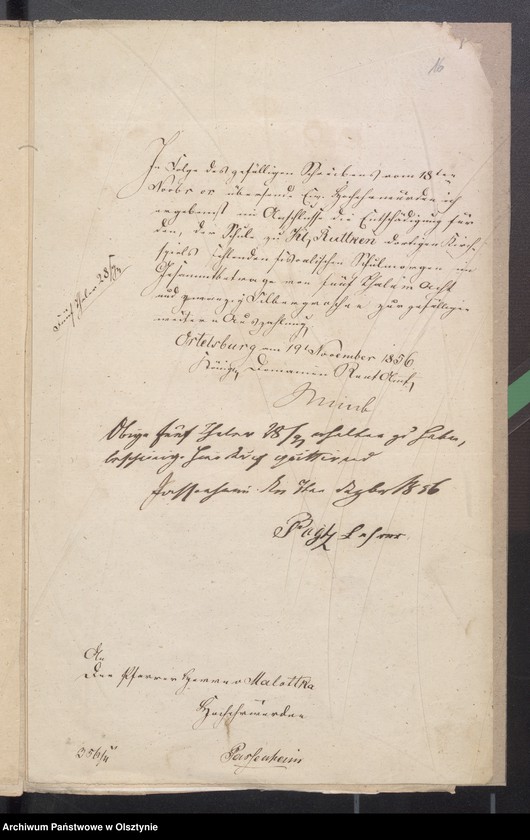 16
In Folge des gefälligen Schreibens vom 18ten
Novbr cr. übersende Ew. Hochehrwürden ich
ergebenst im Anschlusse die Entschädigung für
den, der Schule zu Kl. Ruttken dortigen Kirch-
spiels fehlenden fiscalischen Schulmorgen im
Gesammtbetrage von fünf Thalern acht
und zwanzig Silbergroschen zur gefälligen
weitern Auszahlung.
fünf Thaler 28 Sg
Ortelsburg am 19t November 1856
Königl. Domainen Rent Amt
Obige fünf Thaler 28 Sg erhalten zu haben,
bescheinigt hierdurch quittirend
Passenheim den 7ten Dezbr 1856
Lehrer
An
den Pfarrer Herrn Malottka
Hochehrwürden
Passenheim